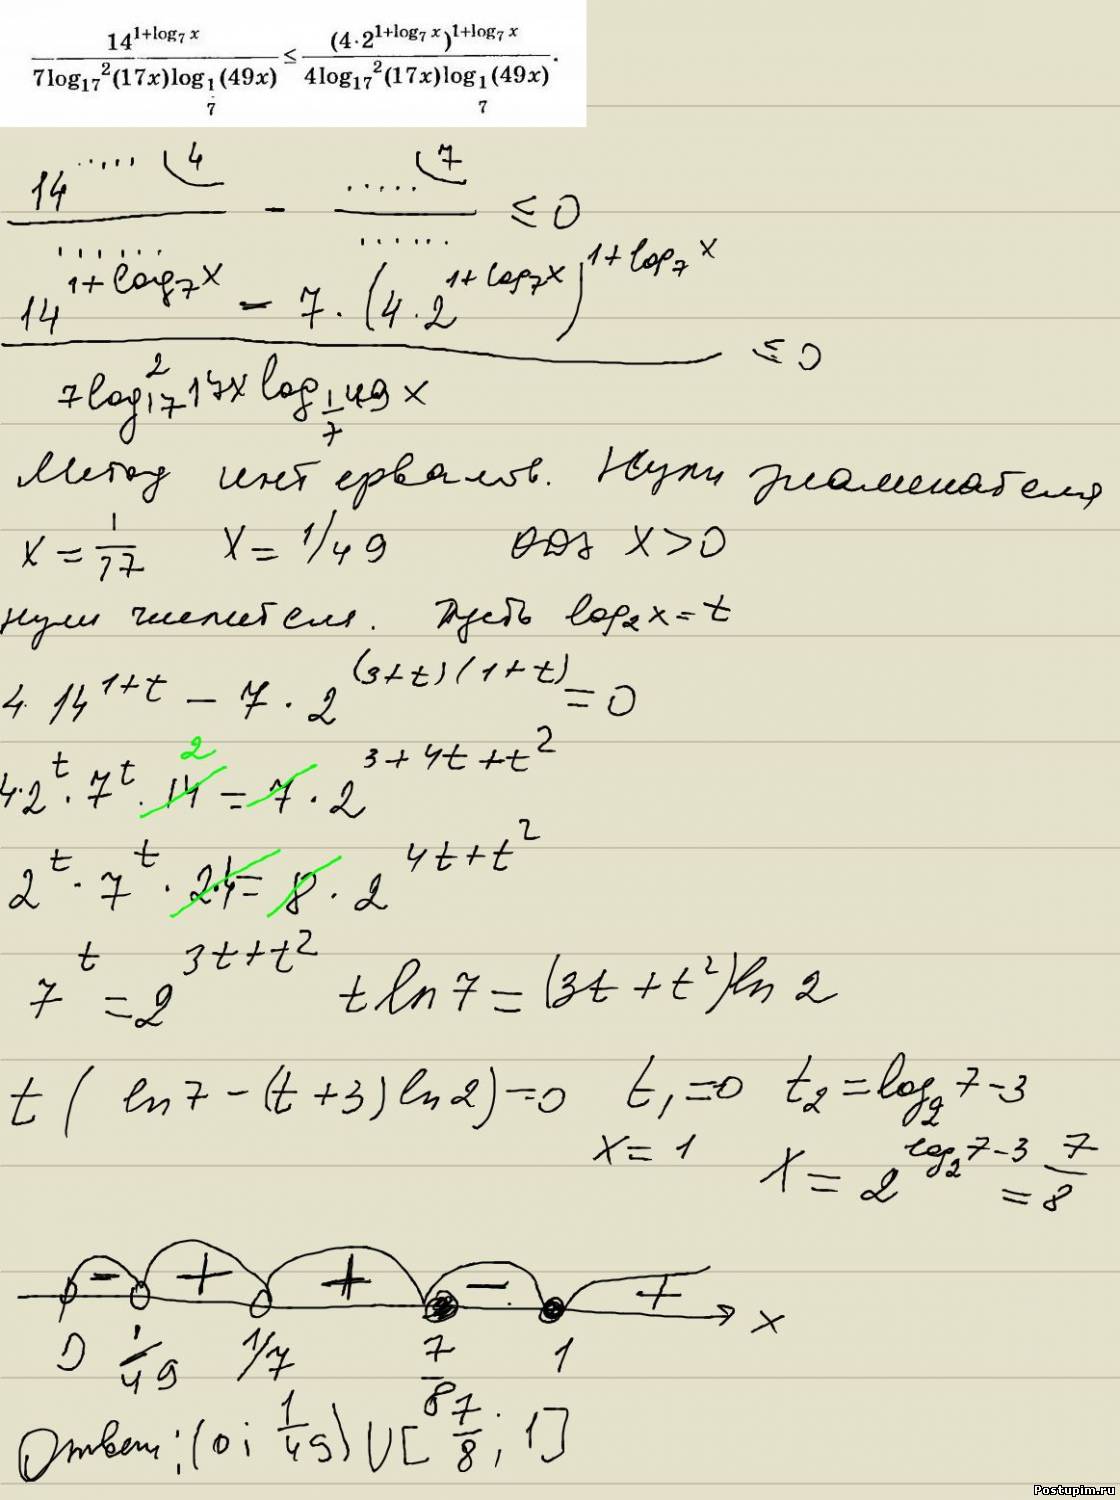 14^{1+log₇ x} / (7log₁₇²(17x)log_{1/7}(49x)) ≤ (4·2^{1+log₇ x})^{1+log₇ x} / (4log₁₇²(17x)log_{1/7}(49x)).
14^{.....} ⌣4 / ...... - ..... ⌣7 / ...... ≤ 0
(14^{1+log₇x} - 7·(4·2^{1+log₇x})^{1+log₇x}) / (7log₁₇²17x log_{1/7}49x) ≤ 0
Метод интервалов. Нули знаменателя
x = 1/17 x = 1/49 ОДЗ x>0
нули числителя. Пусть log₂x = t
4·14^{1+t} - 7·2^{(3+t)(1+t)} = 0
2
4·2^t·7^t·14 = 7·2^{3+4t+t²}
2^t·7^t·2·4 = 8·2^{4t+t²}
7^t = 2^{3t+t²} t ln7 = (3t+t²)ln 2
t( ln7 - (t+3) ln2) = 0 t₁=0 t₂ = log₂7-3
x = 1 x = 2^{log₂7-3} = 7/8
- + + - +
0 1/49 1/7 7/8 1 x
Ответ: (0; 1/49) U [7/8; 1]
Postupim.ru